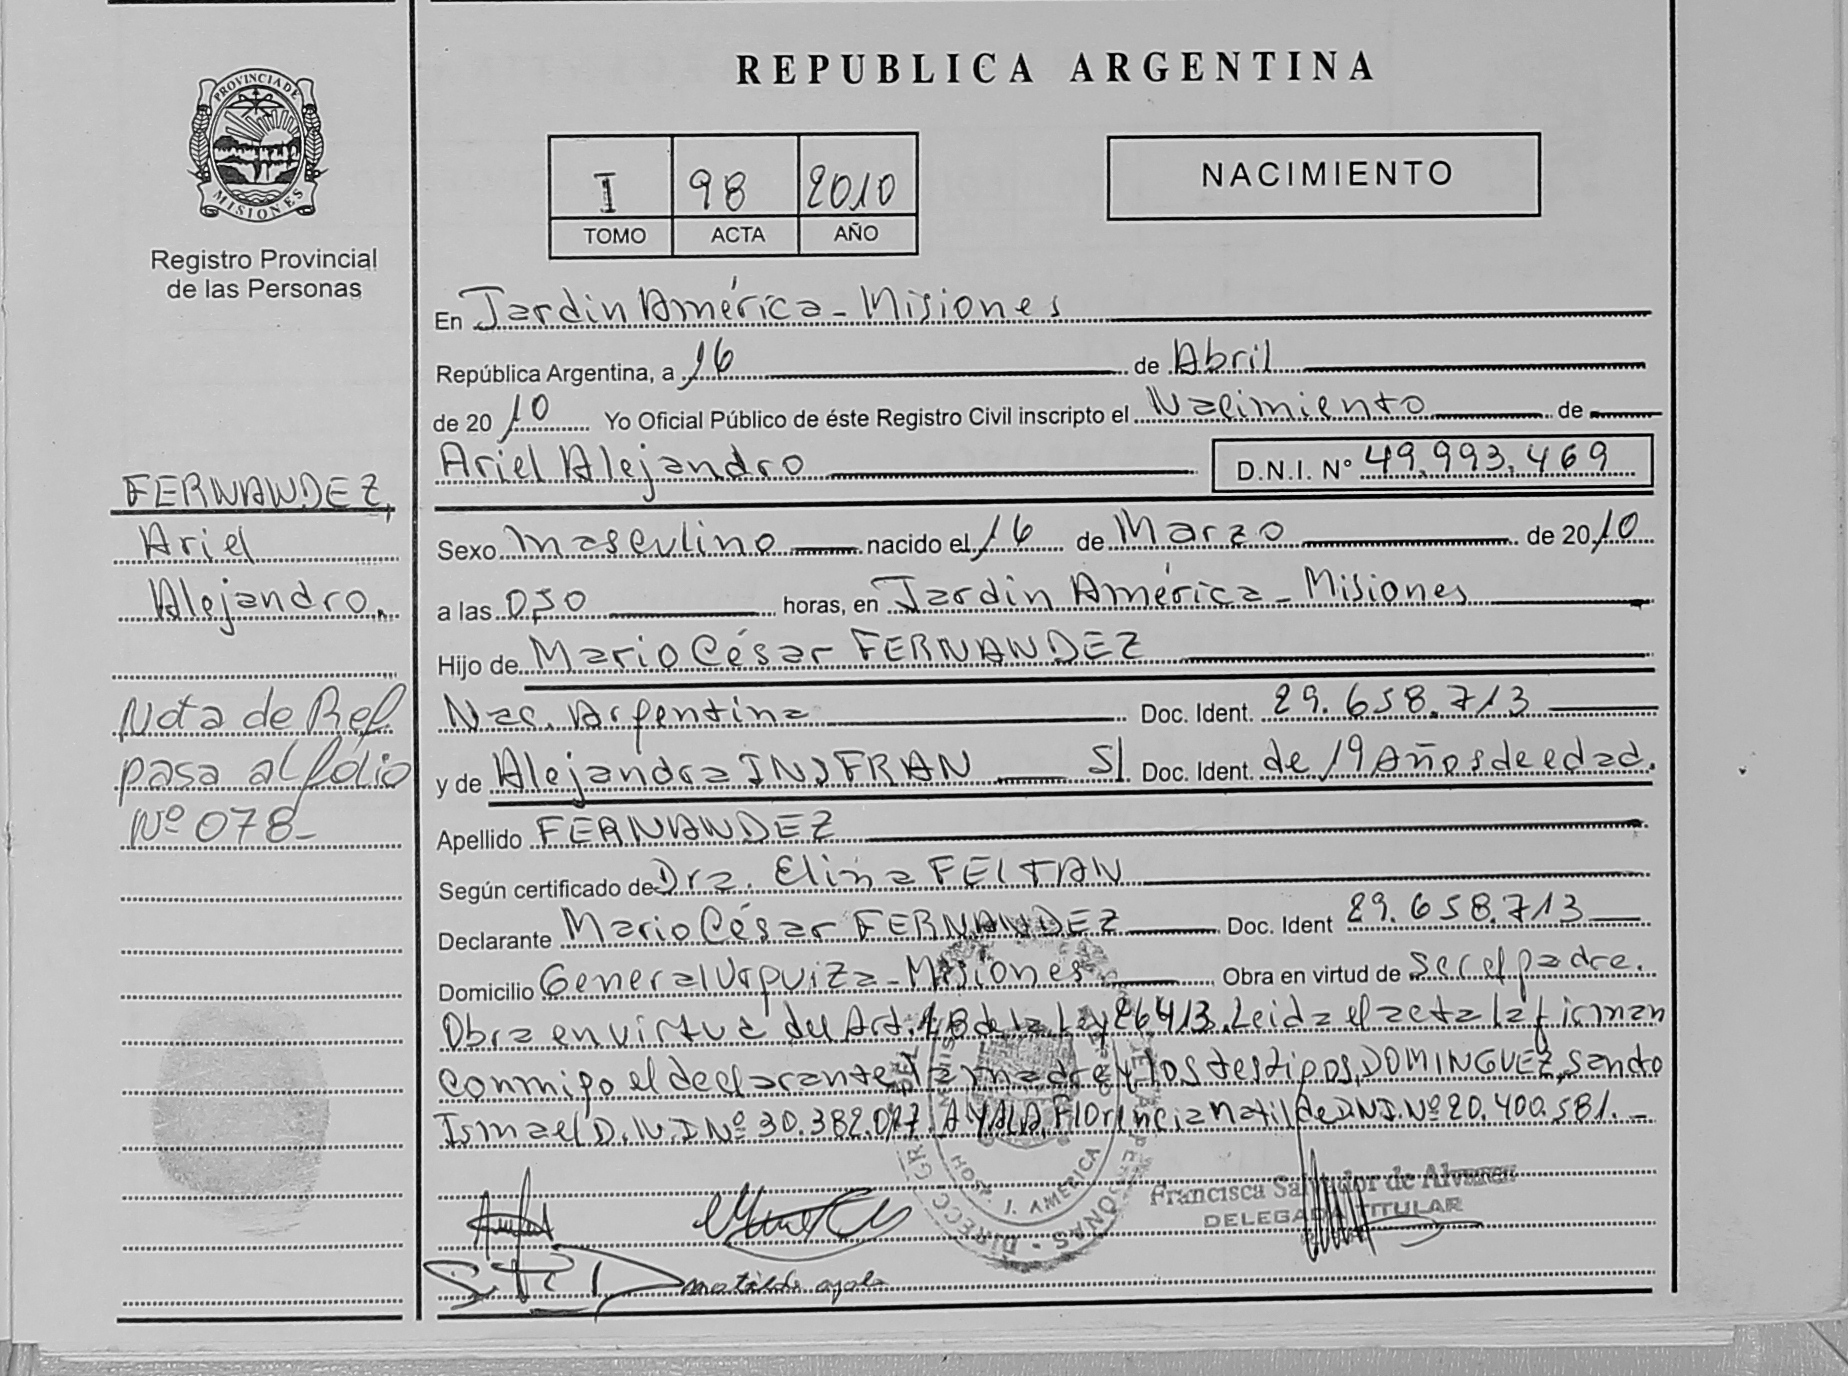 REPUBLICA ARGENTINA
PROVINCIA DE
MISIONES
Registro Provincial
de las Personas
I 98 2010
TOMO ACTA AÑO
NACIMIENTO
En Jardin América - Misiones
República Argentina, a 16 de Abril
de 2010 Yo Oficial Público de éste Registro Civil inscripto el Nacimiento de
Ariel Alejandro D.N.I. Nº 49.993.469
Sexo masculino nacido el 16 de Marzo de 2010
a las 0,50 horas, en Jardin América - Misiones
Hijo de Mario César FERNANDEZ
Nac. Argentina Doc. Ident. 29.658.713
y de Alejandra INSFRAN S/. Doc. Ident. de 19 Años de edad.
Apellido FERNANDEZ
Según certificado de Dra. Elina FELTAN
Declarante Mario César FERNANDEZ Doc. Ident 29.658.713
Domicilio General Urquiza - Misiones Obra en virtud de ser el padre.
Obra en virtud del Art. 18 de la Ley 26413. Leida el acta la firman
conmigo el declarante, la madre y los testigos, DOMINGUEZ, Sando
Ismael D.N.I Nº 30.382.077. AYALA, Florencia Matilde DNI. Nº 20.400.581.-
FERNANDEZ,
Ariel
Alejandro.
Nota de Ref.
pasa al fólio
Nº 078-
J. AMERICA
DIRECC GR
Francisca Salvador de Alvarez
DELEGADA TITULAR
matilde ayala